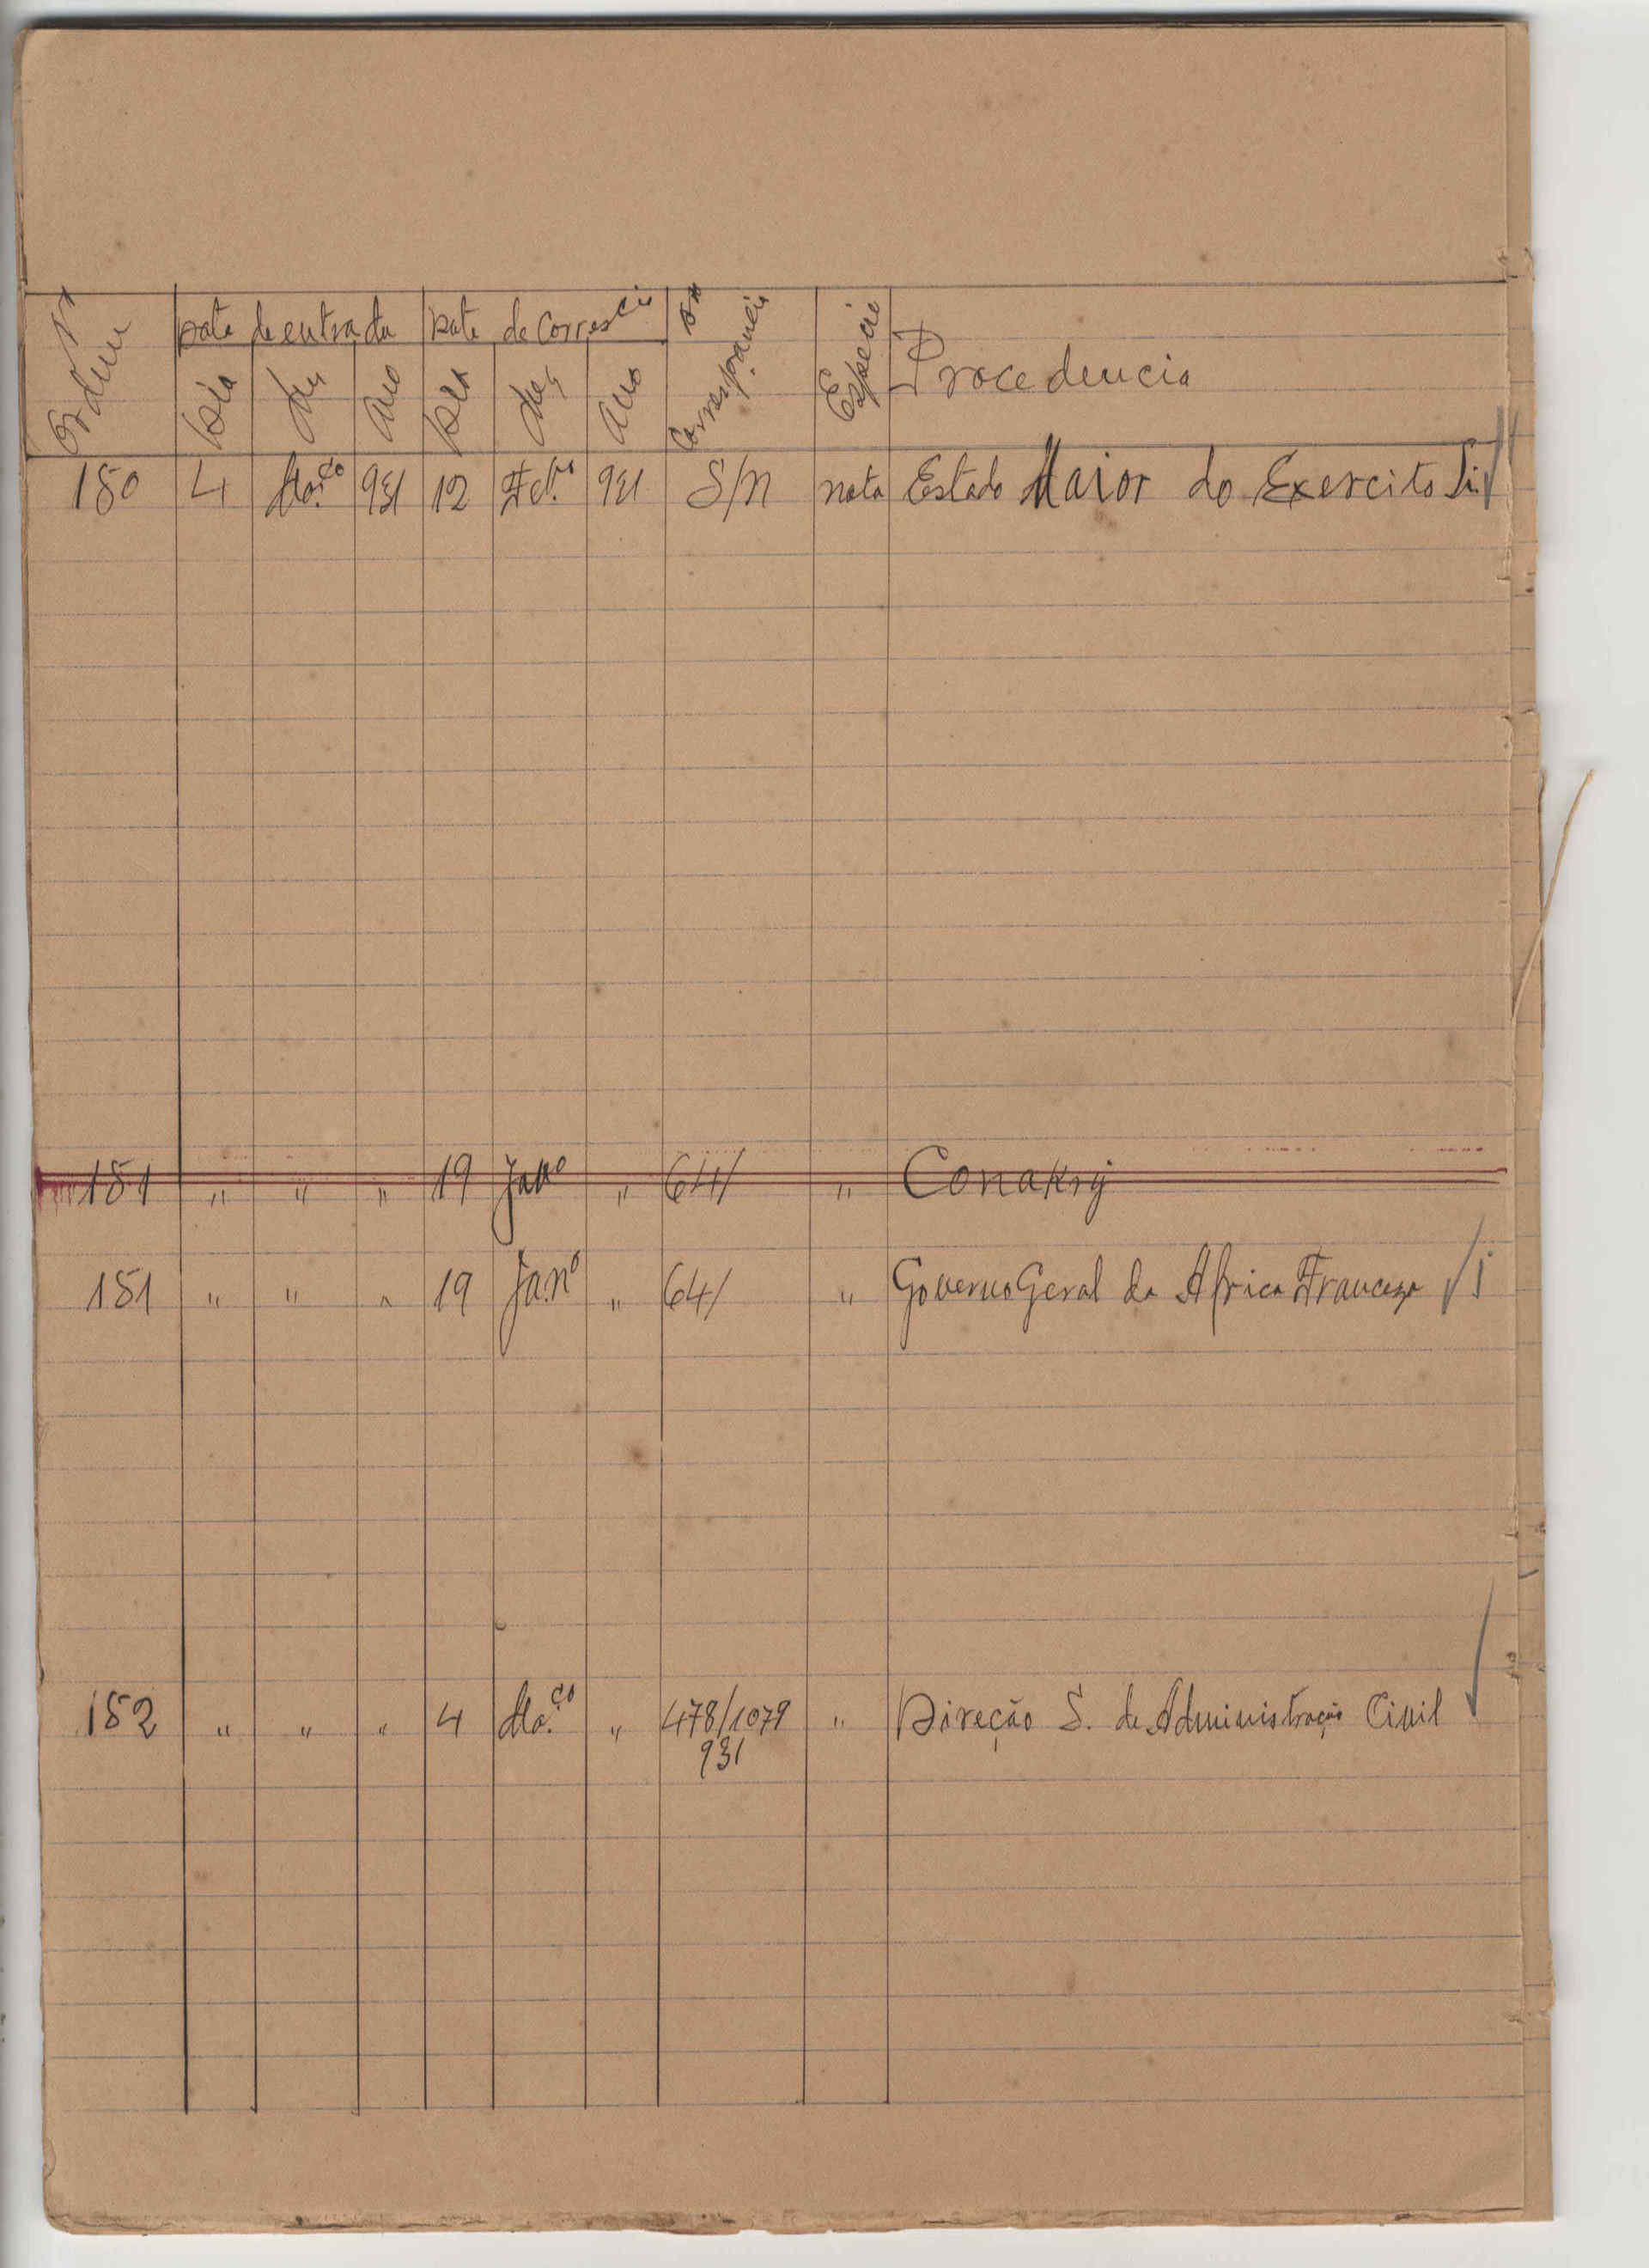 Nº Ordem Data de entrada Data de Corres.cia Nº Correspondencia Especie Procedencia
Dia Mês Ano Dia Mês Ano
150 4 Mar.ço 931 12 Fev.ro 931 S/n nota Estado Maior do Exercito
151 " " " 19 Jan.o " 64/ " Conakry
151 " " " 19 Jan.o " 64/ " Governo Geral da Africa Franceza
152 " " " 4 Mar.ço " 478/1079 " Direção S. de Administração Civil
931